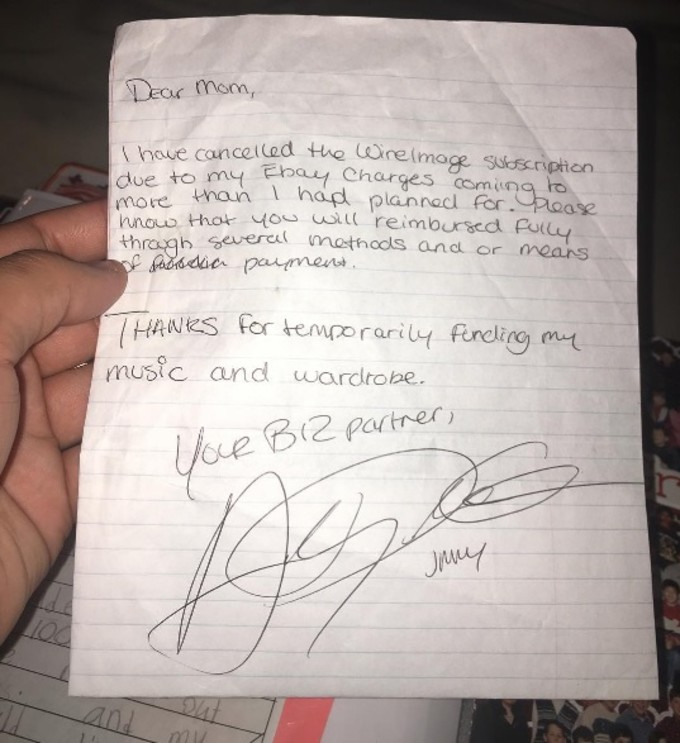 Dear Mom,
I have cancelled the WireImage subscription
due to my Ebay Charges comiing to
more than I had planned for. Please
know that you will reimbursed fully
through several methods and or means
of payment.
THANKS for temporarily funding my
music and wardrobe.
Your BIZ partner,
100
out
and
my